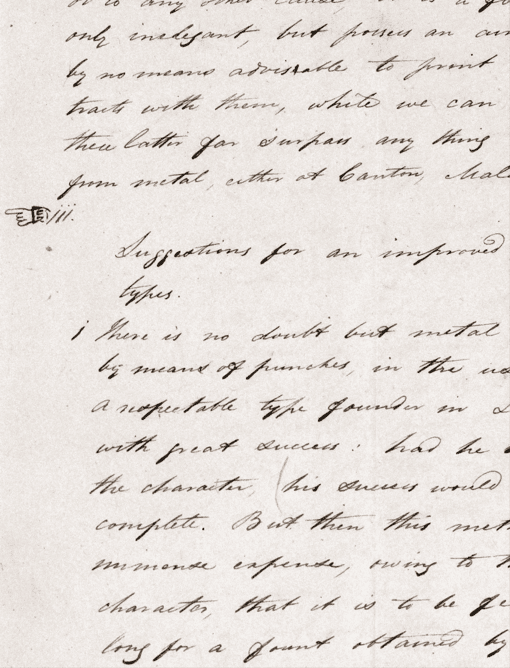 or to any other cause, it is a
only inelegant, but possess an
by no means advisable to print
tracts with them, while we can
these latter far surpass any thing
from metal, either at Canton, Mala
iii.
Suggestions for an improved
types.
i There is no doubt but metal
by means of punches, in the us
a respectable type founder in
with great success: had he
the character, (his success would
complete. But then this met
immense expense, owing to th
character, that it is to be fe
long for a fount obtained by